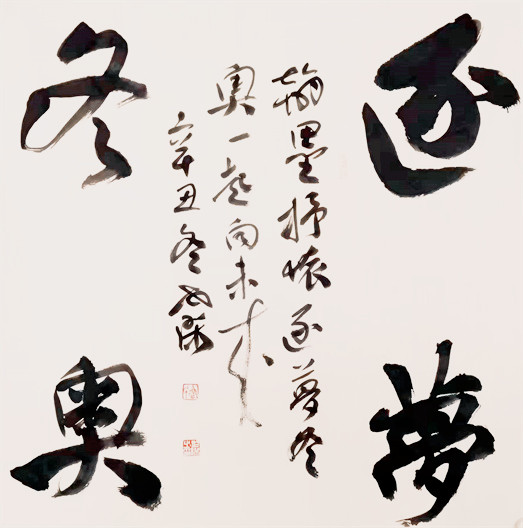 逐夢
冬奥
翰墨抒懷逐夢冬
奥一起向未来
辛丑冬